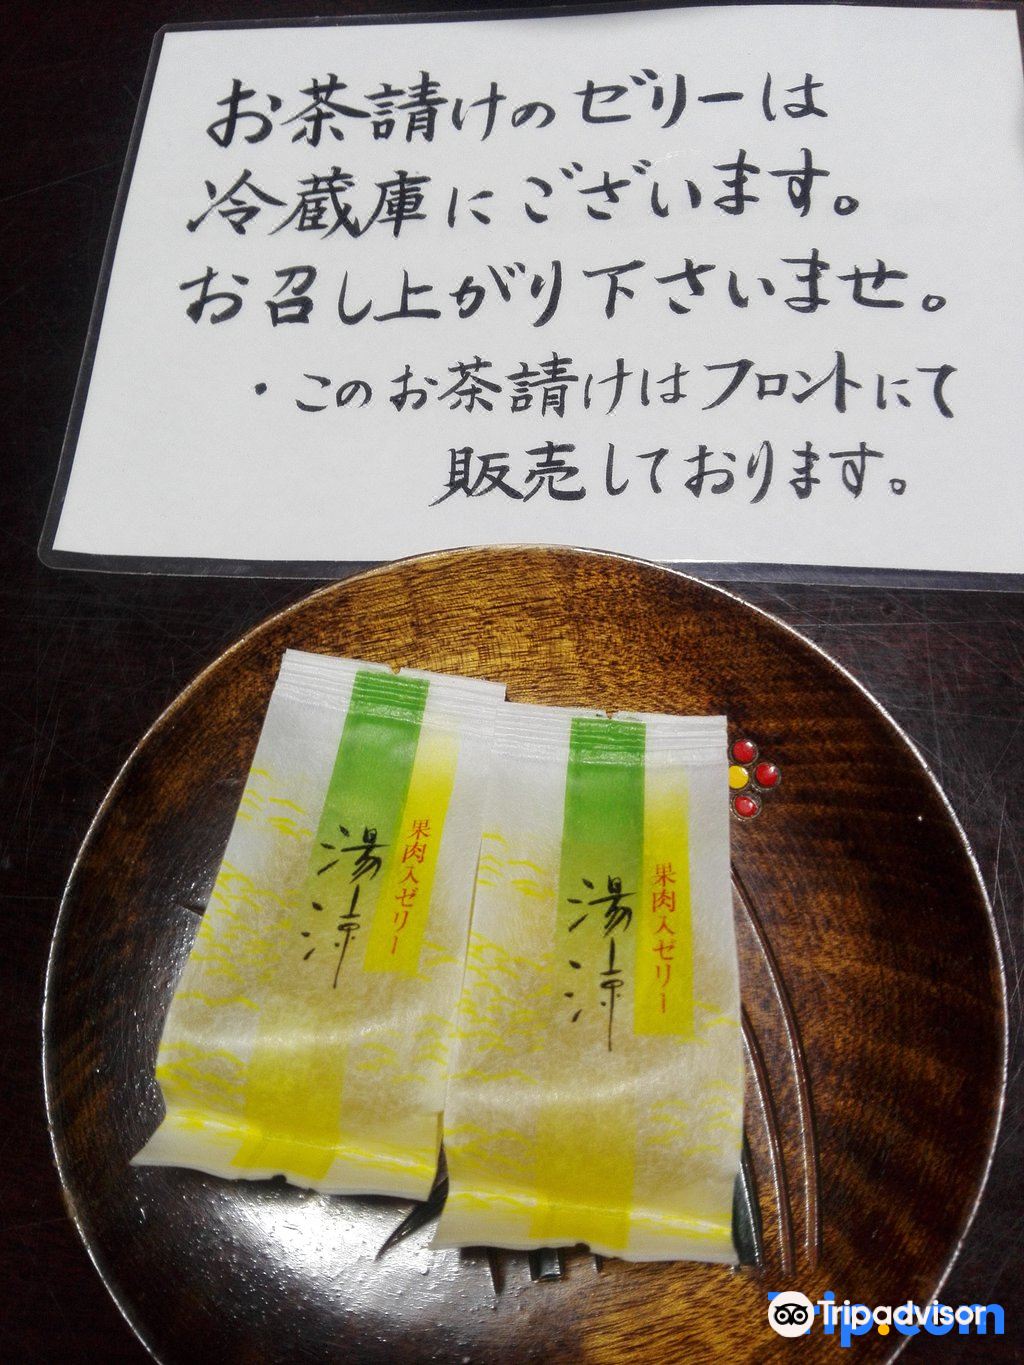 お茶請けのゼリーは
冷蔵庫にございます。
お召し上がり下さいませ。
・このお茶請けはフロントにて
販売しております。
果肉入ゼリー
湯涼
果肉入ゼリー
湯涼
Tripadvisor
Trip.com